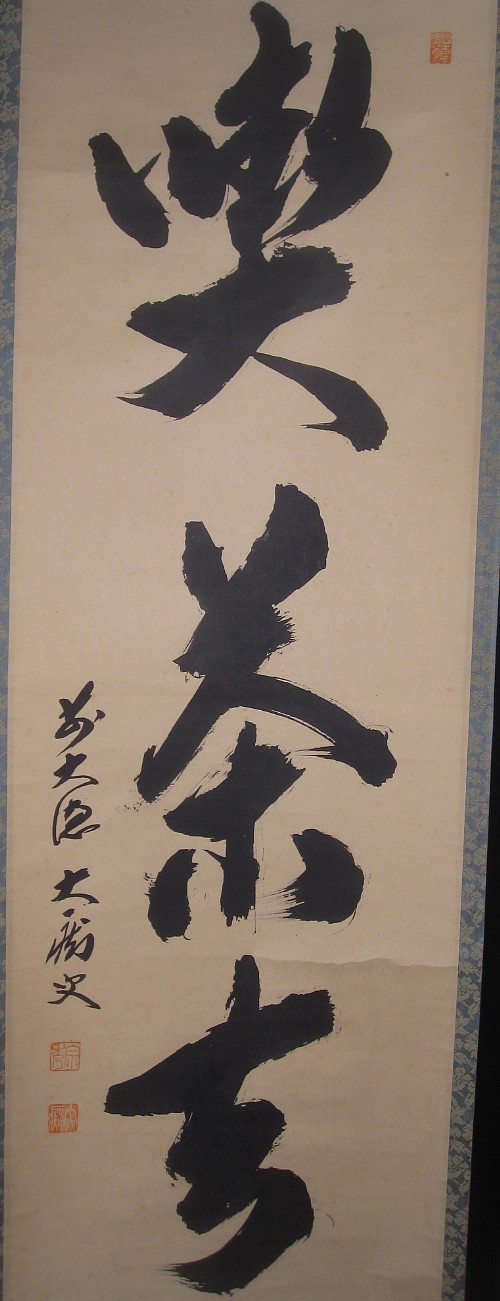 喫茶去
前大徳 大⬚叟